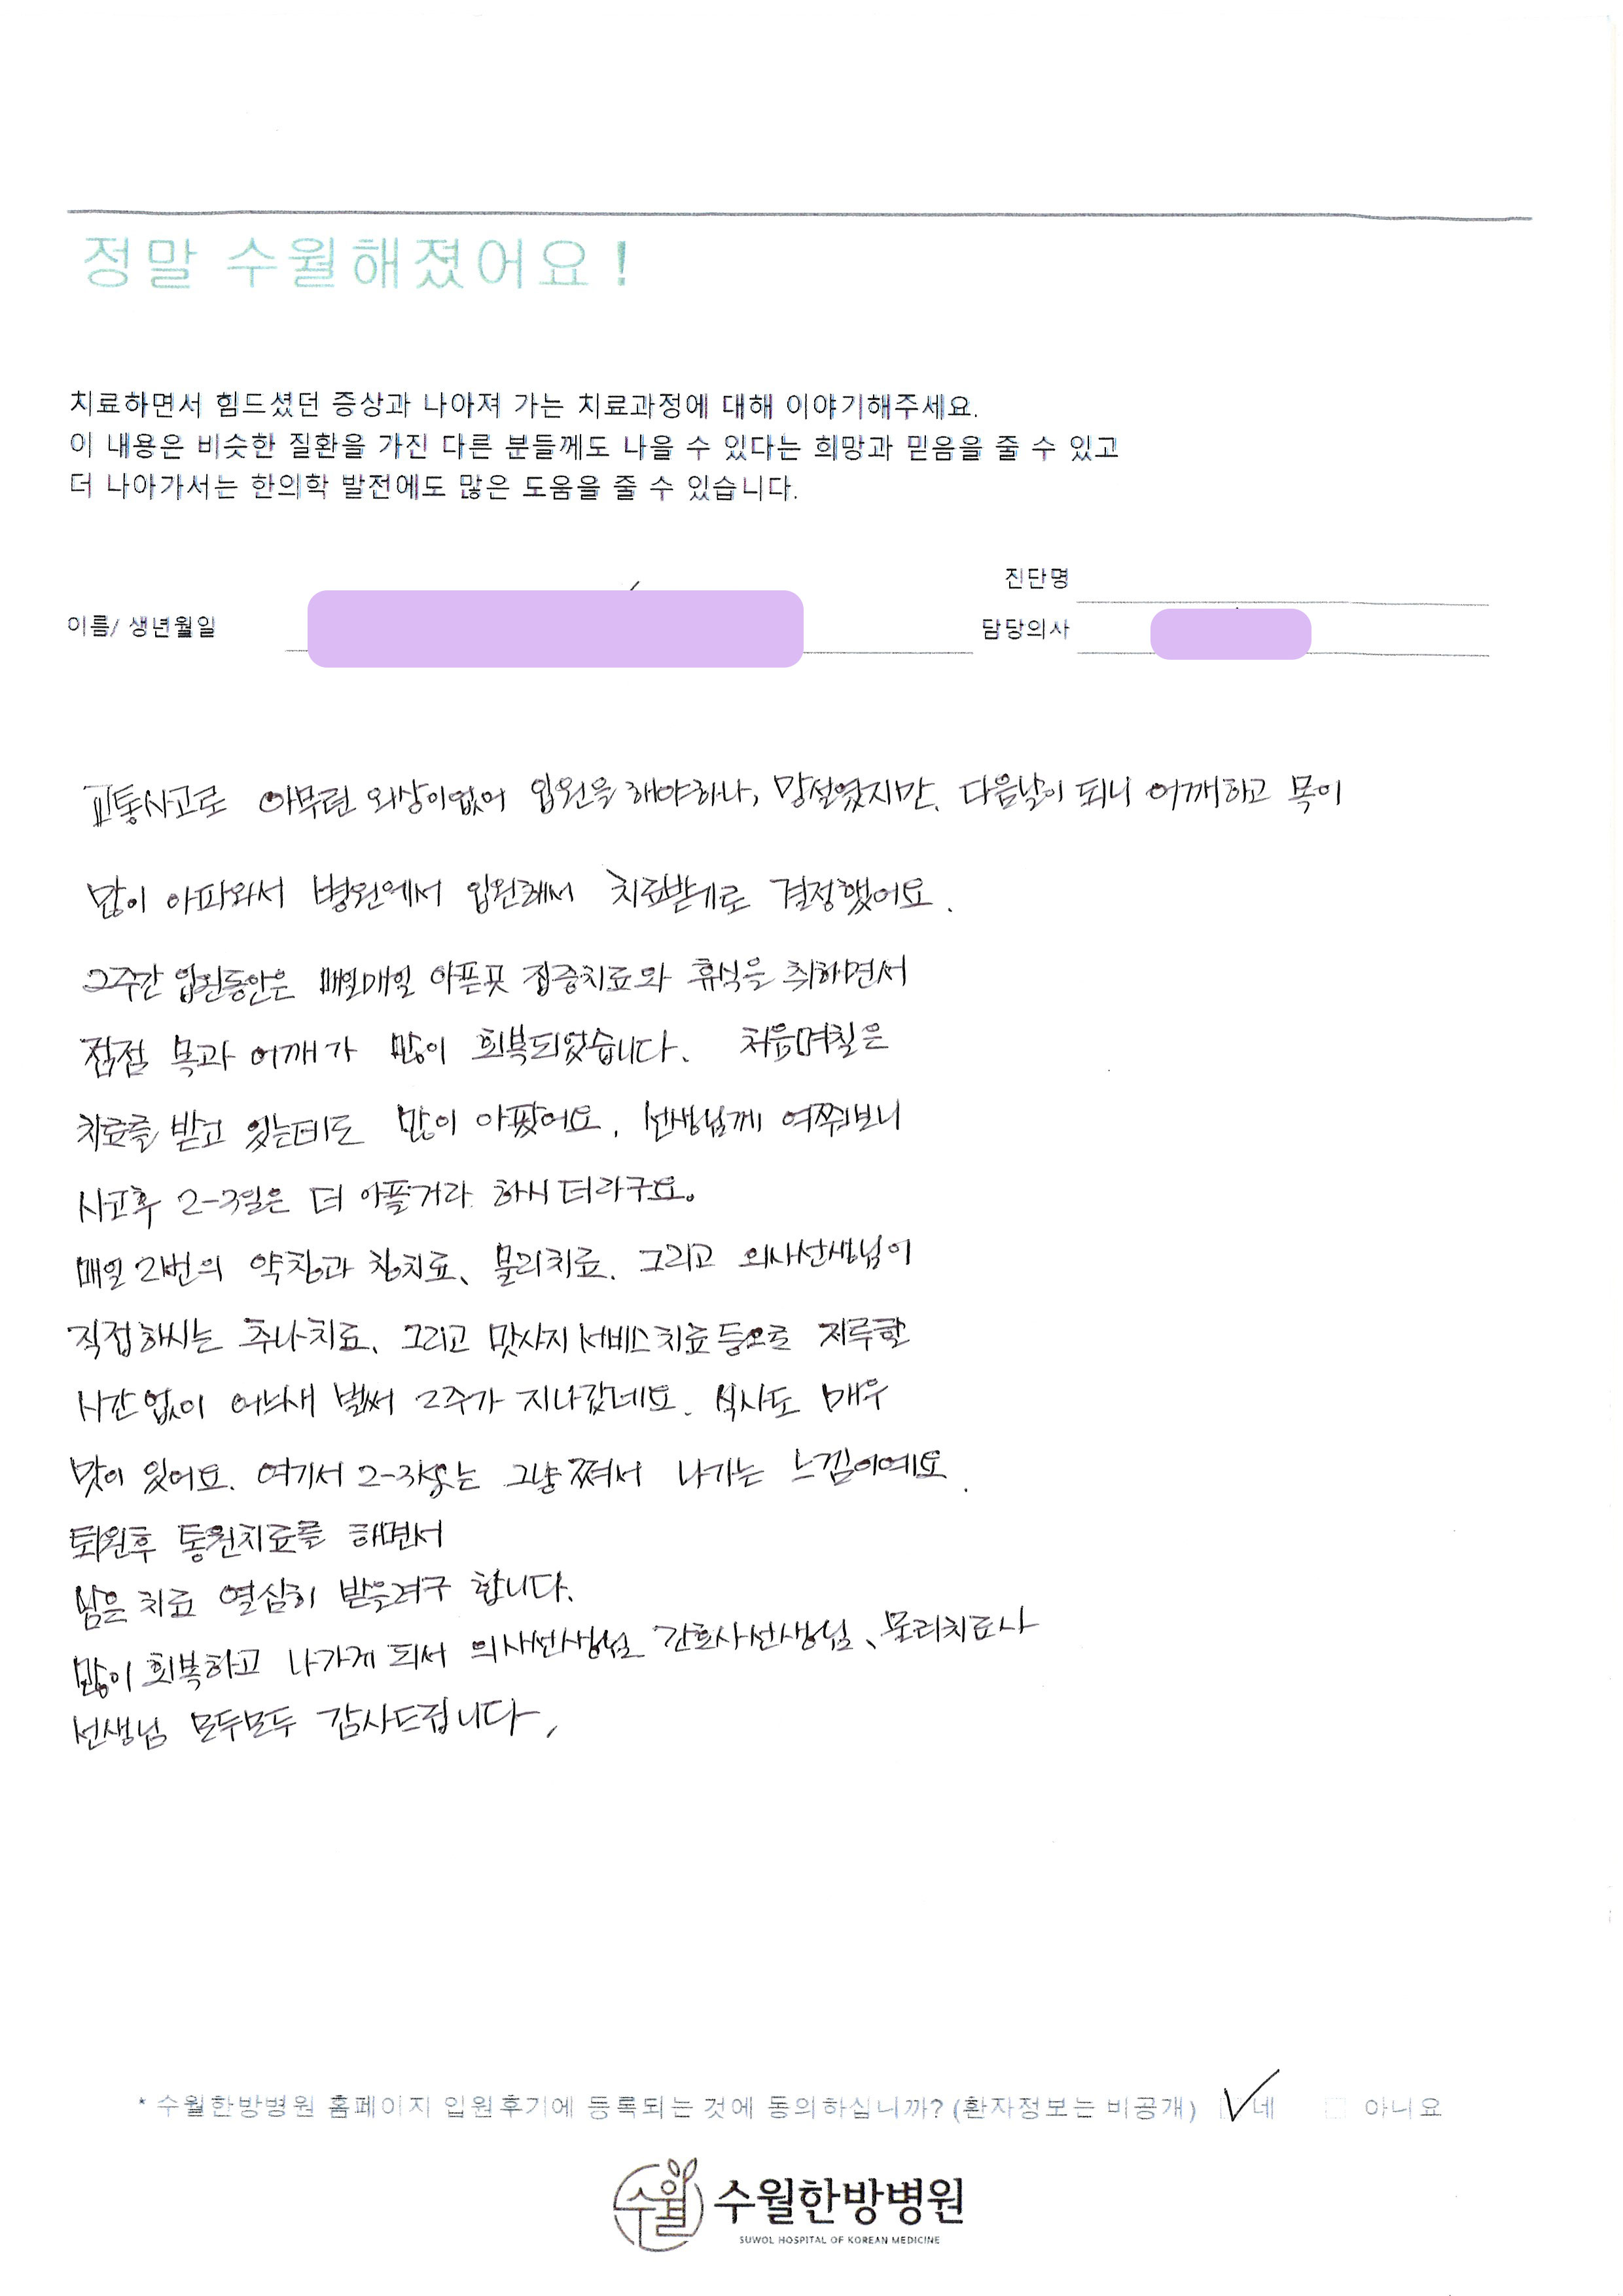 정말 수월해졌어요!
치료하면서 힘드셨던 증상과 나아져 가는 치료과정에 대해 이야기해주세요.
이 내용은 비슷한 질환을 가진 다른 분들께도 나을 수 있다는 희망과 믿음을 줄 수 있고
더 나아가서는 한의학 발전에도 많은 도움을 줄 수 있습니다.
진단명
이름/ 생년월일
담당의사
교통사고로 아무런 외상이없어 입원을 해야하나, 망설였지만. 다음날이 되니 어깨하고 목이
많이 아파와서 병원에서 입원해서 치료받기로 결정했어요.
2주간 입원동안은 매일매일 아픈곳 집중치료와 휴식을 취하면서
점점 목과 어깨가 많이 회복되었습니다. 처음며칠은
치료를 받고 있는데도 많이 아팠어요. 선생님께 여쭤보니
사고후 2-3일은 더 아플거라 하시더라구요.
매일 2번의 약침과 침치료、물리치료. 그리고 의사선생님이
직접하시는 추나치료、그리고 맛사지 서비스치료등으로 지루할
시간없이 어느새 벌써 2주가 지나갔네요. 식사도 매우
맛이 있어요. 여기서 2-3키로는 그냥 쪄서 나가는 느낌이예요.
퇴원후 통원치료를 하면서
남은 치료 열심히 받을려구 합니다.
많이 회복하고 나가게 되서 의사선생님 간호사선생님、물리치료사
선생님 모두모두 감사드립니다,
* 수월한방병원 홈페이지 입원후기에 등록되는 것에 동의하십니까? (환자정보는 비공개) ✓네 □ 아니요
수월 수월한방병원
SUWOL HOSPITAL OF KOREAN MEDICINE